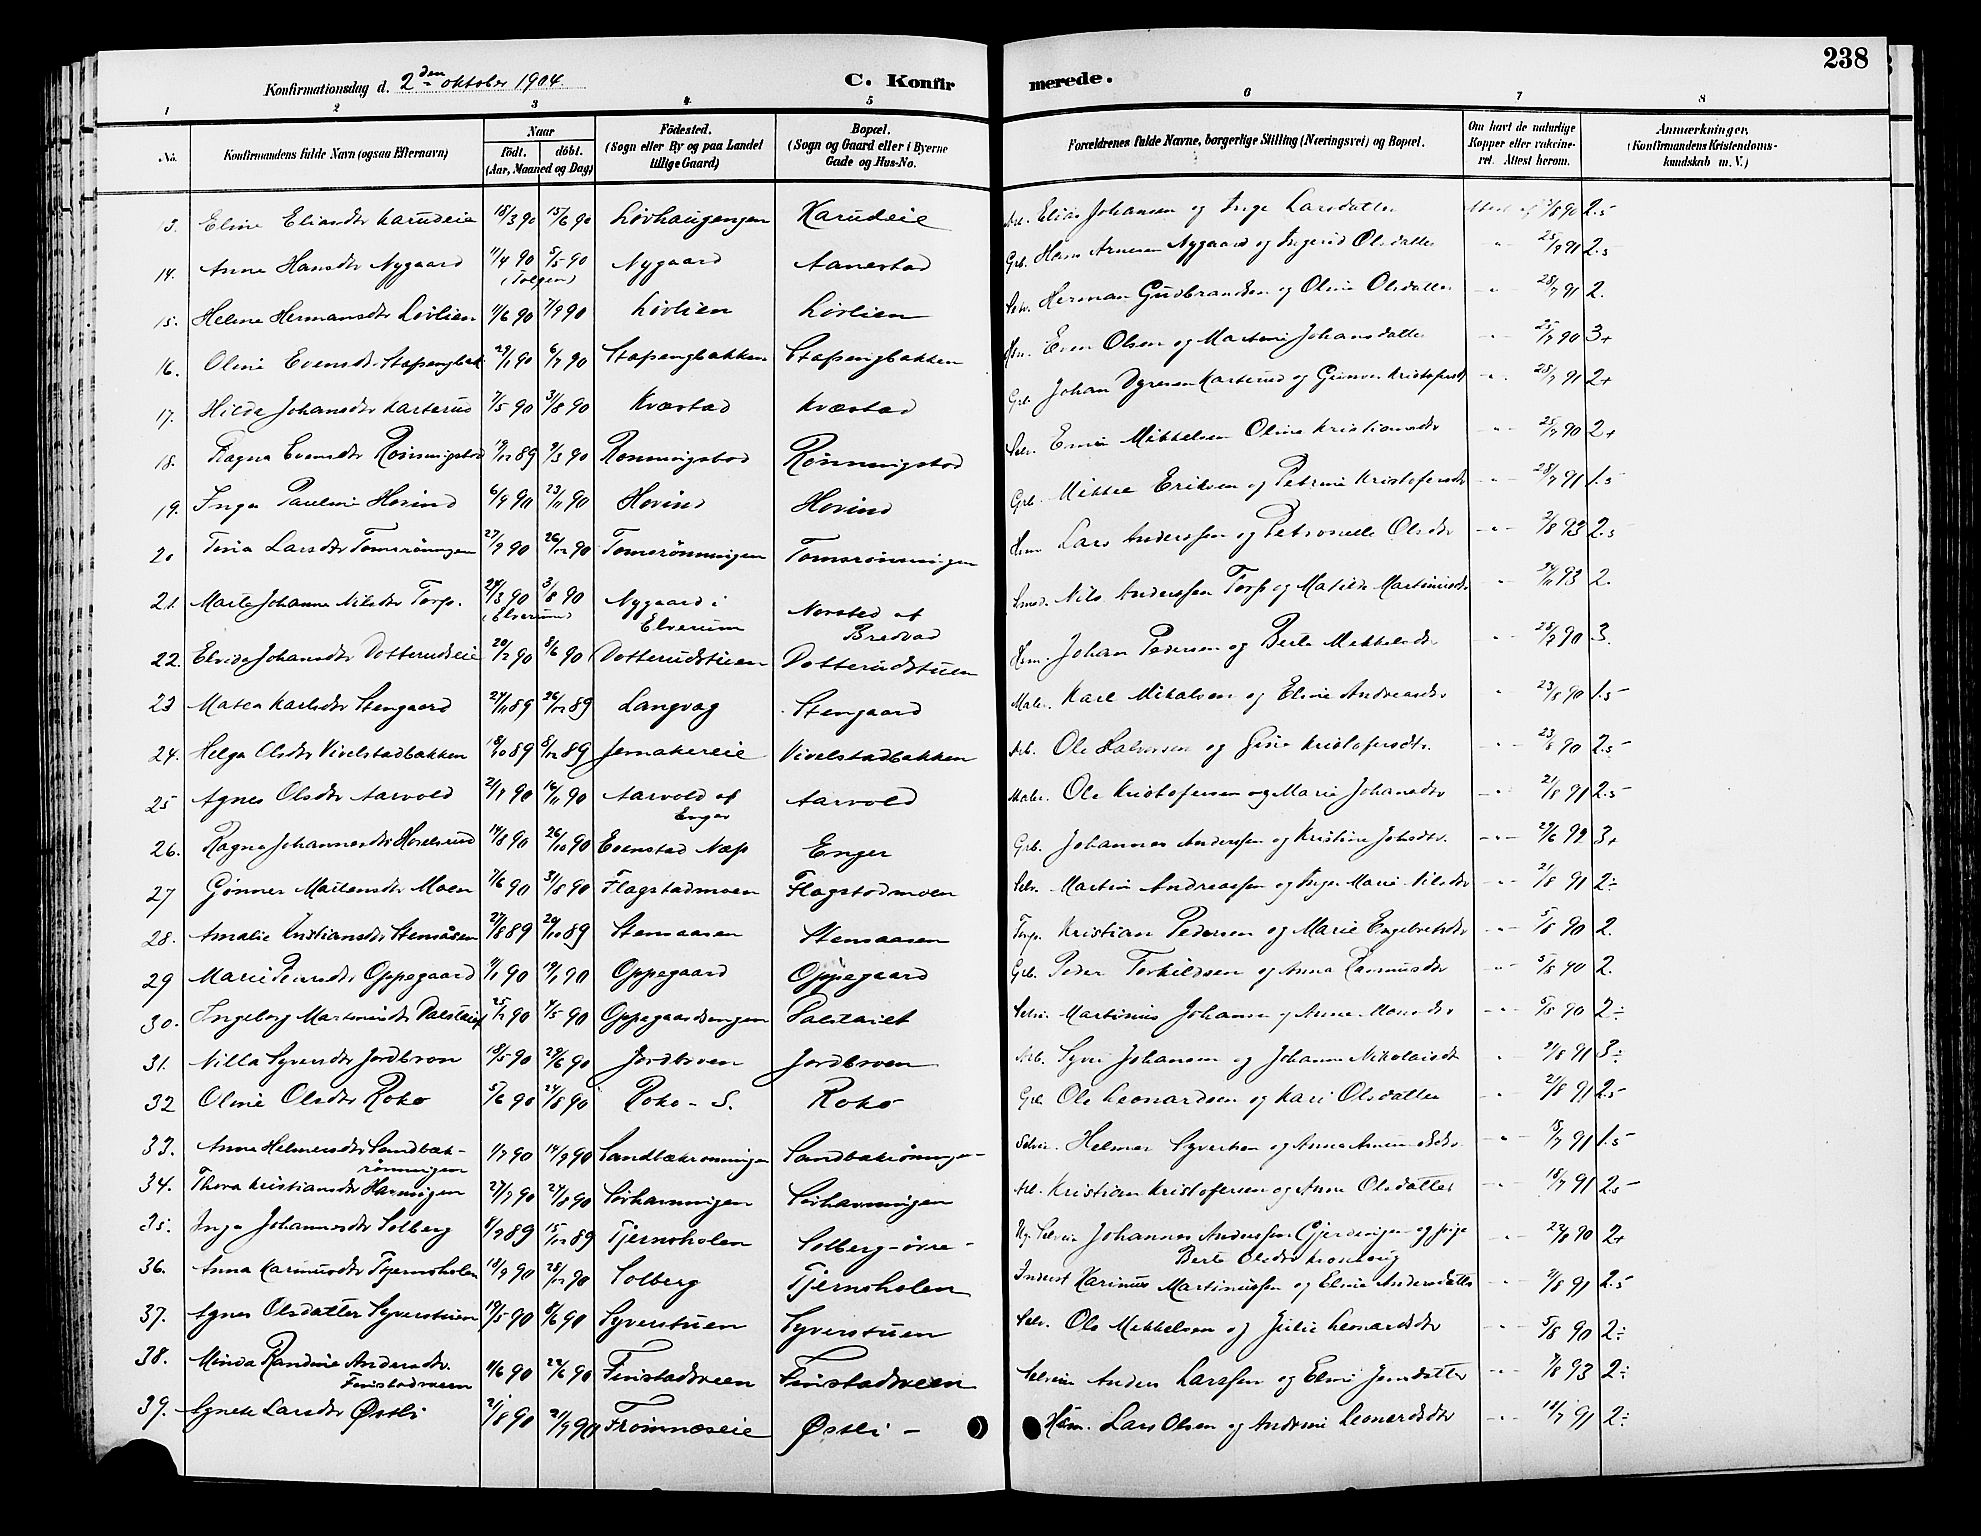 238
Konfirmationsdag d. 2den oktober 1904.
C. Konfirmerede.
1 2 3 4 5 6 7 8
No. Konfirmandens fulde Navn (ogsaa Efternavn) Naar födt. döbt. (Aar, Maaned og Dag) Födested. (Sogn eller By og paa Landet tillige Gaard) Bopæl. (Sogn og Gaard eller i Byerne Gade og Hus-No. Forældrenes fulde Navne, borgerlige Stilling (Næringsvei) og Bopæl. Om havt de naturlige Kopper eller vaccineret. Attest herom. Anmærkninger, (Konfirmandens Kristendomskundskab m. V.)
13. Eline Eliasdtr Karudeie 18/3 90 15/6 90 Lövhaugengen Karudeie Arb. Elias Johansen og Inge Larsdatter Attest af /8 90 2.5
14. Anne Hansdtr Nygaard 11/4 90 5/5 90 (Tolgen) Nygaard Aanestad Grb. Hans Arnesen Nygaard og Ingerid Olsdatter 25/7 91 2.5
15. Helene Hermansdtr Lövlien 11/6 90 7/9 90 Lövlien Lövlien Selv. Herman Gudbrandsen og Oline Olsdatter 28/7 91 2.
16. Oline Evensdtr Stapengbak 29/1 90 6/7 90 Stapengbakken Stapengbakken Hsm. Even Olsen og Martine Johansdatter 25/7 90 3+
17. Hilda Johansdtr Karterud 7/5 90 31/8 90 Kvæstad Kvæstad Grb. Johan Dyresen Karterud og Gunvor Kristofersdtr 28/7 91 2+
18. Ragna Evensdtr Rönningstad 19/12 89 9/3 90 Rönningstad Rönningstad Selv. Even Mikkelsen Oline Kristiansdtr 25/7 90 2+
19. Inga Pauline Hovind 6/9 90 23/11 90 Hovind Hovind Grb. Mikkel Eriksen og Petrine Kristofersdtr 28/7 91 1.5
20 Tina Larsdtr Tomsrönningen 27/9 90 26/12 90 Tomsrönningen Tomsrönningen Hsm Lars Anderssen og Petronelle Olsdtr 2/8 93 2.5
21. Marte Johanne Nilsdtr Torp. 24/3 90 3/8 90 (Elverum) Nygaard i Elverum Norsted af Bredvad Smed. Nils Anderssen Torp og Matilde Martinusdtr 24/11 93 2.
22. Elvida Johansdtr Dotterudseie 20/2 90 8/6 90 Dotterudstuen Dotterudstuen Hsm. Johan Pedersen og Berte Mikkelsdtr 28/7 90 3.
23 Matea Karlsdtr Stengaard 24/11 89 26/12 89 Langvag Stengaard Maler. Karl Mikalsen og Eline Andreasdtr 23/8 90 1.5
24. Helga Olsdtr Vivelstadbakken 18/10 89 8/12 89 Jemakereie Vivelstadbakken Arb. Ole Halvorsen og Gina Kristofersdtr. 23/8 90 2.5
25 Agnes Olsdtr Aarvold 21/9 90 16/11 90 Aarvold af Enger Aarvold Maler. Ole Kristofersen og Marie Johansdtr 21/8 91 2.5
26. Ragna Johannesdtr Hoselsrud 14/8 90 26/10 90 Evenstad Næs Enger Grb. Johannes Anderssen og Kristine Johsdtr. 29/6 92 3+
27 Gönner Martensdtr Moen 7/6 90 31/8 90 Flagstadmoen Flagstadmoen Selv. Martin Andreassen og Inger Marie Nilsdtr 21/8 91 2÷
28. Amalie Kristiansdtr Stensåsen 27/8 89 20/10 89 Stensaasen Stensaasen Torp. Kristian Pedersen og Marie Engebretsdtr 5/8 90 2.
29 Marie Pedersdtr Oppegaard 9/1 90 19/1 90 Oppegaard Oppegaard Grb. Peder Torkildsen og Anna Rasmusdtr 5/8 90 2.
30. Ingeborg Martinusdtr 25/2 90 4/5 90 Oppegaardsengen Selv. Martinus Johansen og Anne Monsdtr 5/8 90 2÷
31. Nilla Syversdtr Jordbroen 18/5 90 29/6 90 Jordbroen Jordbroen Arb. Syver Johansen og Johanne Nikolaisdtr 21/8 91 3÷
32 Oline Olsdtr Roko 5/6 90 24/8 90 Roko - S. Roko Grb. Ole Leonardsen og Kari Olsdatter 21/8 91 2.5
33. Anne Helmersdtr Sandbækrönningen 1/7 90 14/9 90 Sandbækrönningen Sandbækrönningen Selv. Helmer Syvertsen og Anne 18/7 91 1.5
34. Thora Kristiansdtr Harmingen 27/7 90 24/8 90 Sörharmingen Sörharmingen Arb. Kristian Kristofersen og Anne Olsdatter 18/7 91 2.5
35. Inga Johannesdtr Solberg 8/9 89 15/12 89 Tjernsholen Solberg-övre - Ug. Selveier Johannes Anderssen Gjerdingen og pige Berte Olsdtr 23/8 90 2+
36. Anna Karinusdtr Tjernsholen 18/9 90 28/12 90 Solberg Tjernsholen Inderst Karinus Martinussen og Eline Andersdatter 21/8 91 2.5
37. Agnes Olsdatter Syverstuen 19/5 90 8/6 90 Syverstuen Syverstuen Selv. Ole Mikkelsen og Julie Leonardsdtr 5/8 90 2÷
38. Minda Randine Andersdtr. Finstadsveen 11/6 90 22/6 90 Finstadsveen Finstadsveen Selveier Anders Larssen og Eline Jensdatter 7/8 93 2÷
39. Agnete Larsdtr Østli 21/8 90 21/9 90 Frönnæseie Østli - Hsm. Lars Olsen og Andrine Leonardsdtr 18/7 91 2÷